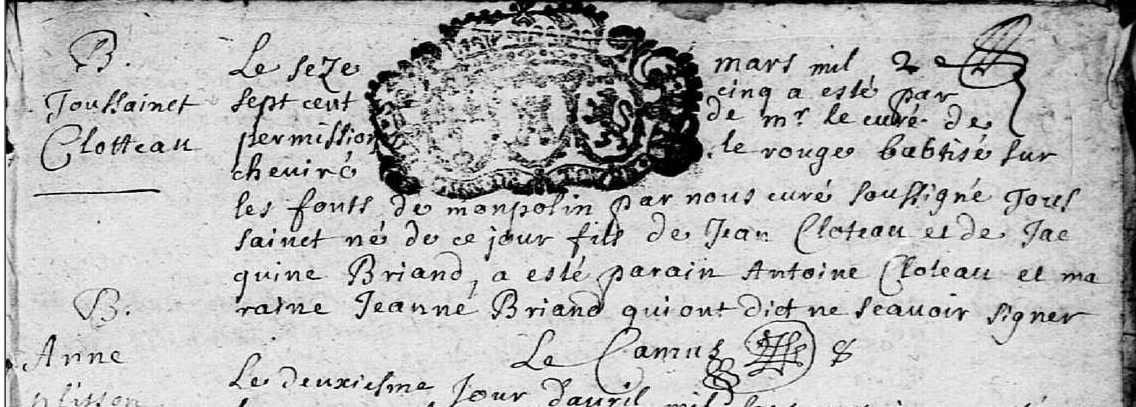 B.
Toussainct
Clotteau
Le seze mars mil
sept cent cinq a esté par
permission de mr le curé de
cheviré le rouge babtisé sur
les fonts de monpolin par nous curé soussigné Tous
sainct né de ce jour fils de Jean Cloteau et de Jac
quine Briand, a esté parain Antoine Cloteau et ma
raine Jeanne Briand qui ont dict ne scavoir signer
Le Camus
B.
Anne
plisson
Le deuxiesme Jour d'avril mil